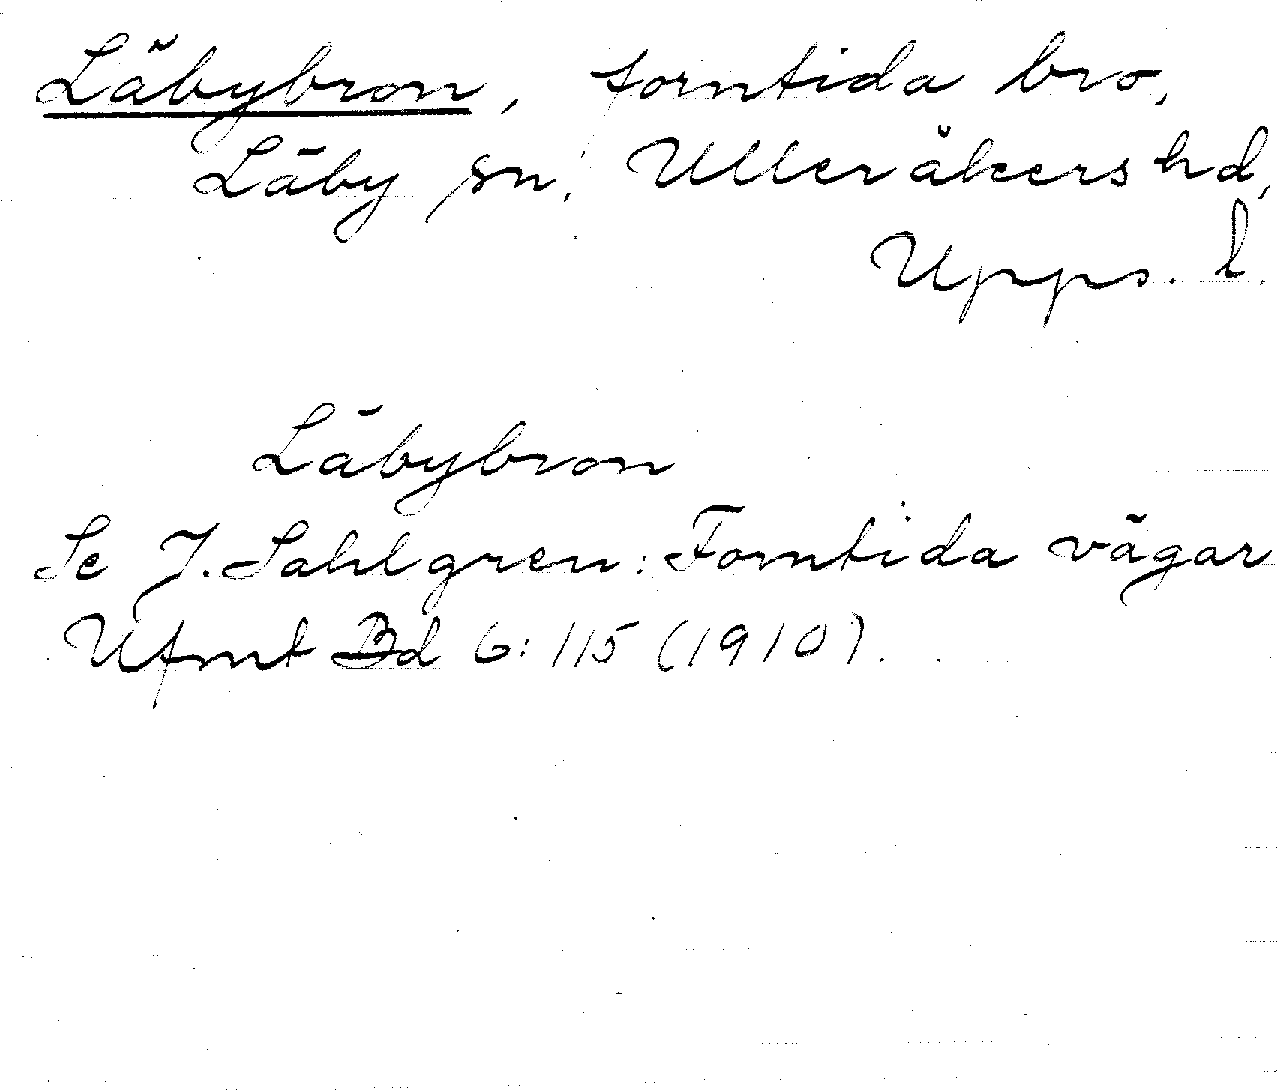 Läbybron, forntida bro,
Läby sn, Ulleråkers hd,
Upps. l.
Läbybron
Se J. Sahlgren: Forntida vägar
Ufmt Bd 6:115 (1910).